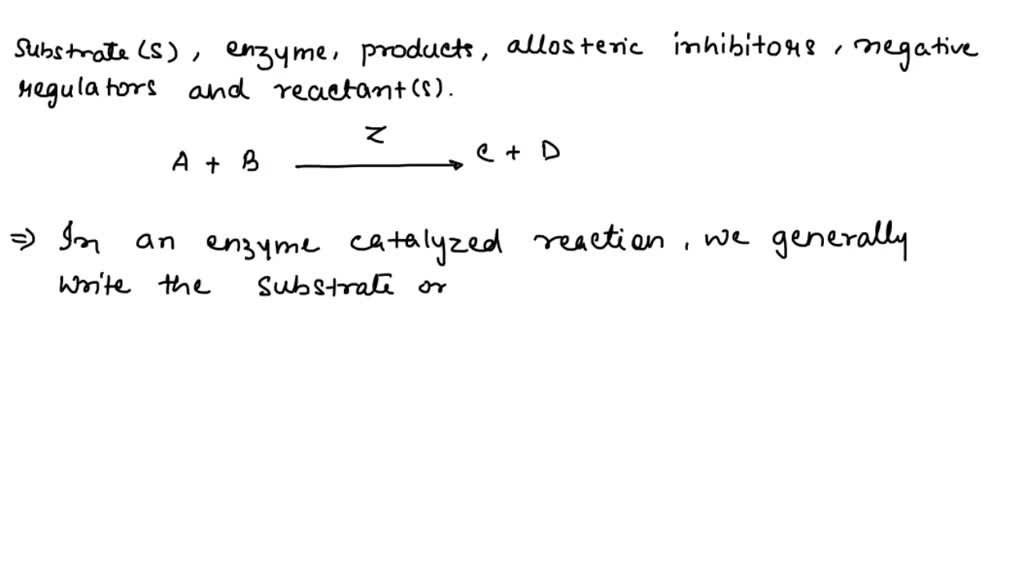 Substrate(s), enzyme, products, allosteric inhibitors, negative
regulators and reactant(s).
Z
A + B → C + D
⇒ In an enzyme catalyzed reaction, we generally
write the substrate or